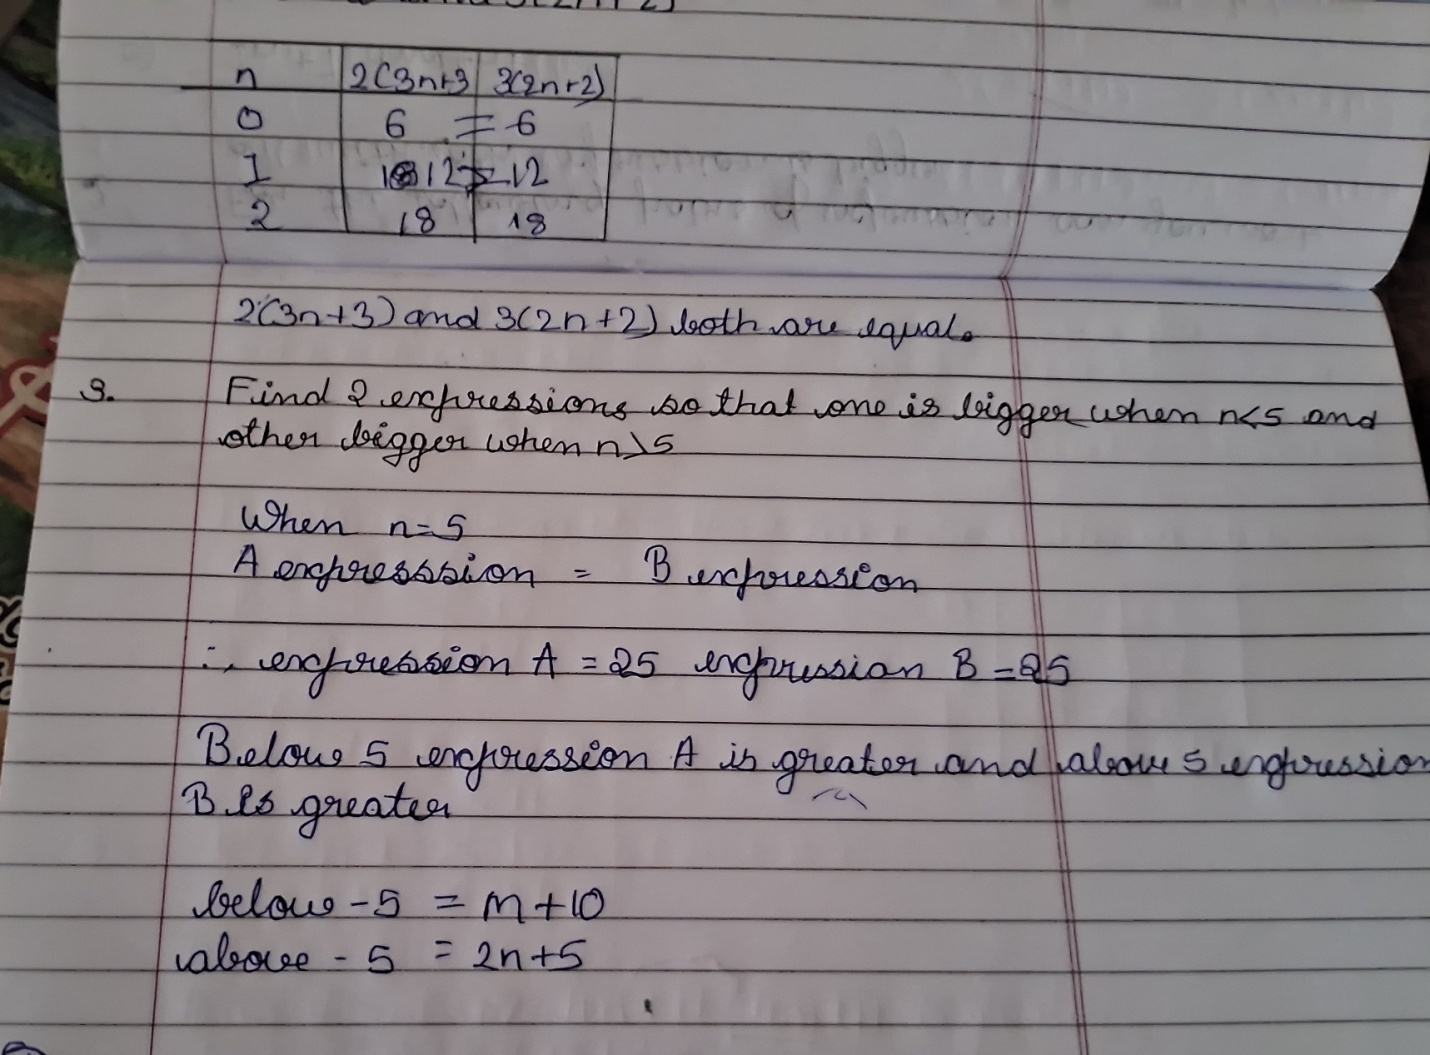 n 2(3n+3 3(2n+2)
0 6 = 6
1 12 = 12
2 18 18
2(3n+3) and 3(2n+2) both are equal.
3. Find 2 expressions so that one is bigger when n<5 and
other bigger when n>5
When n=5
A expresssion = B expression
∴ expression A = 25 expression B = 25
Below 5 expression A is greater and above 5 expression
B is greater
below - 5 = n+10
above - 5 = 2n+5